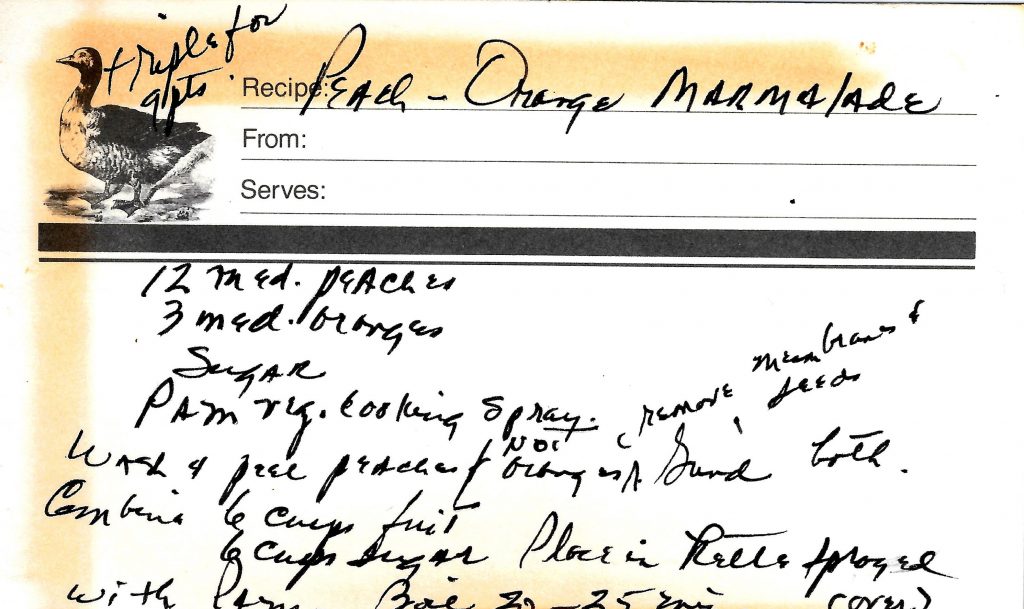 triple for
9 pts.
Recipe: Peach - Orange Marmalade
From:
Serves:
12 med. peaches
3 med. oranges
Sugar
Pam veg. cooking spray.
remove membranes &
seeds
not
Wash & peel peaches & oranges, Grind both.
Combine 6 cups fruit
6 cups sugar Place in kettle sprayed
with Pam. Boil 20-25 min (over)